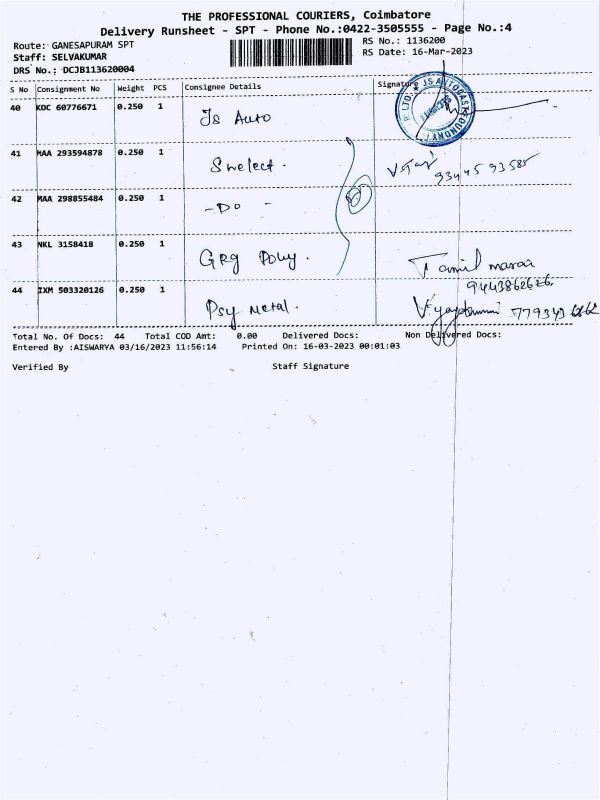 THE PROFESSIONAL COURIERS, Coimbatore
Delivery Runsheet - SPT - Phone No.:0422-3505555 - Page No.:4
Route: GANESAPURAM SPT
RS No.: 1136200
Staff: SELVAKUMAR
RS Date: 16-Mar-2023
DRS No.: DCJB113620004
S No Consignment No Weight PCS Consignee Details Signature
40 KOC 60776671 0.250 1 JS Auto
41 MAA 293594878 0.250 1 Swelect.
42 MAA 298855484 0.250 1 - Do -
43 NKL 3158418 0.250 1 GRg Poly. Tamil maran
9443862626
44 IXM 503320126 0.250 1 Psy Metal.
Total No. Of Docs: 44 Total COD Amt: 0.00 Delivered Docs: Non Delivered Docs:
Entered By :AISWARYA 03/16/2023 11:56:14 Printed On: 16-03-2023 00:01:03
Verified By Staff Signature